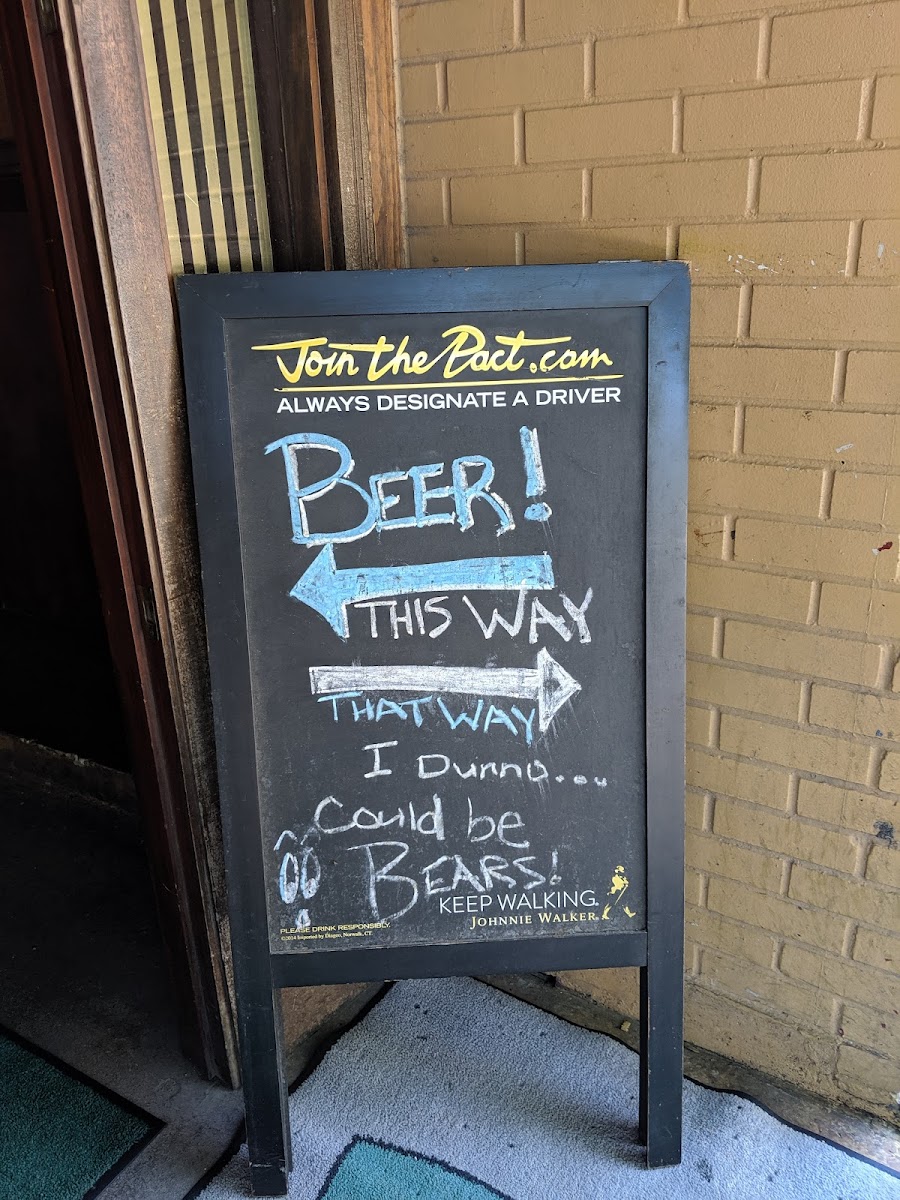 Join the Pact.com
ALWAYS DESIGNATE A DRIVER
BEER!
THIS WAY
THAT WAY
I Dunno...
Could be
BEARS!
KEEP WALKING.
JOHNNIE WALKER.
PLEASE DRINK RESPONSIBLY.
©2014 Imported by Diageo, Norwalk, CT.